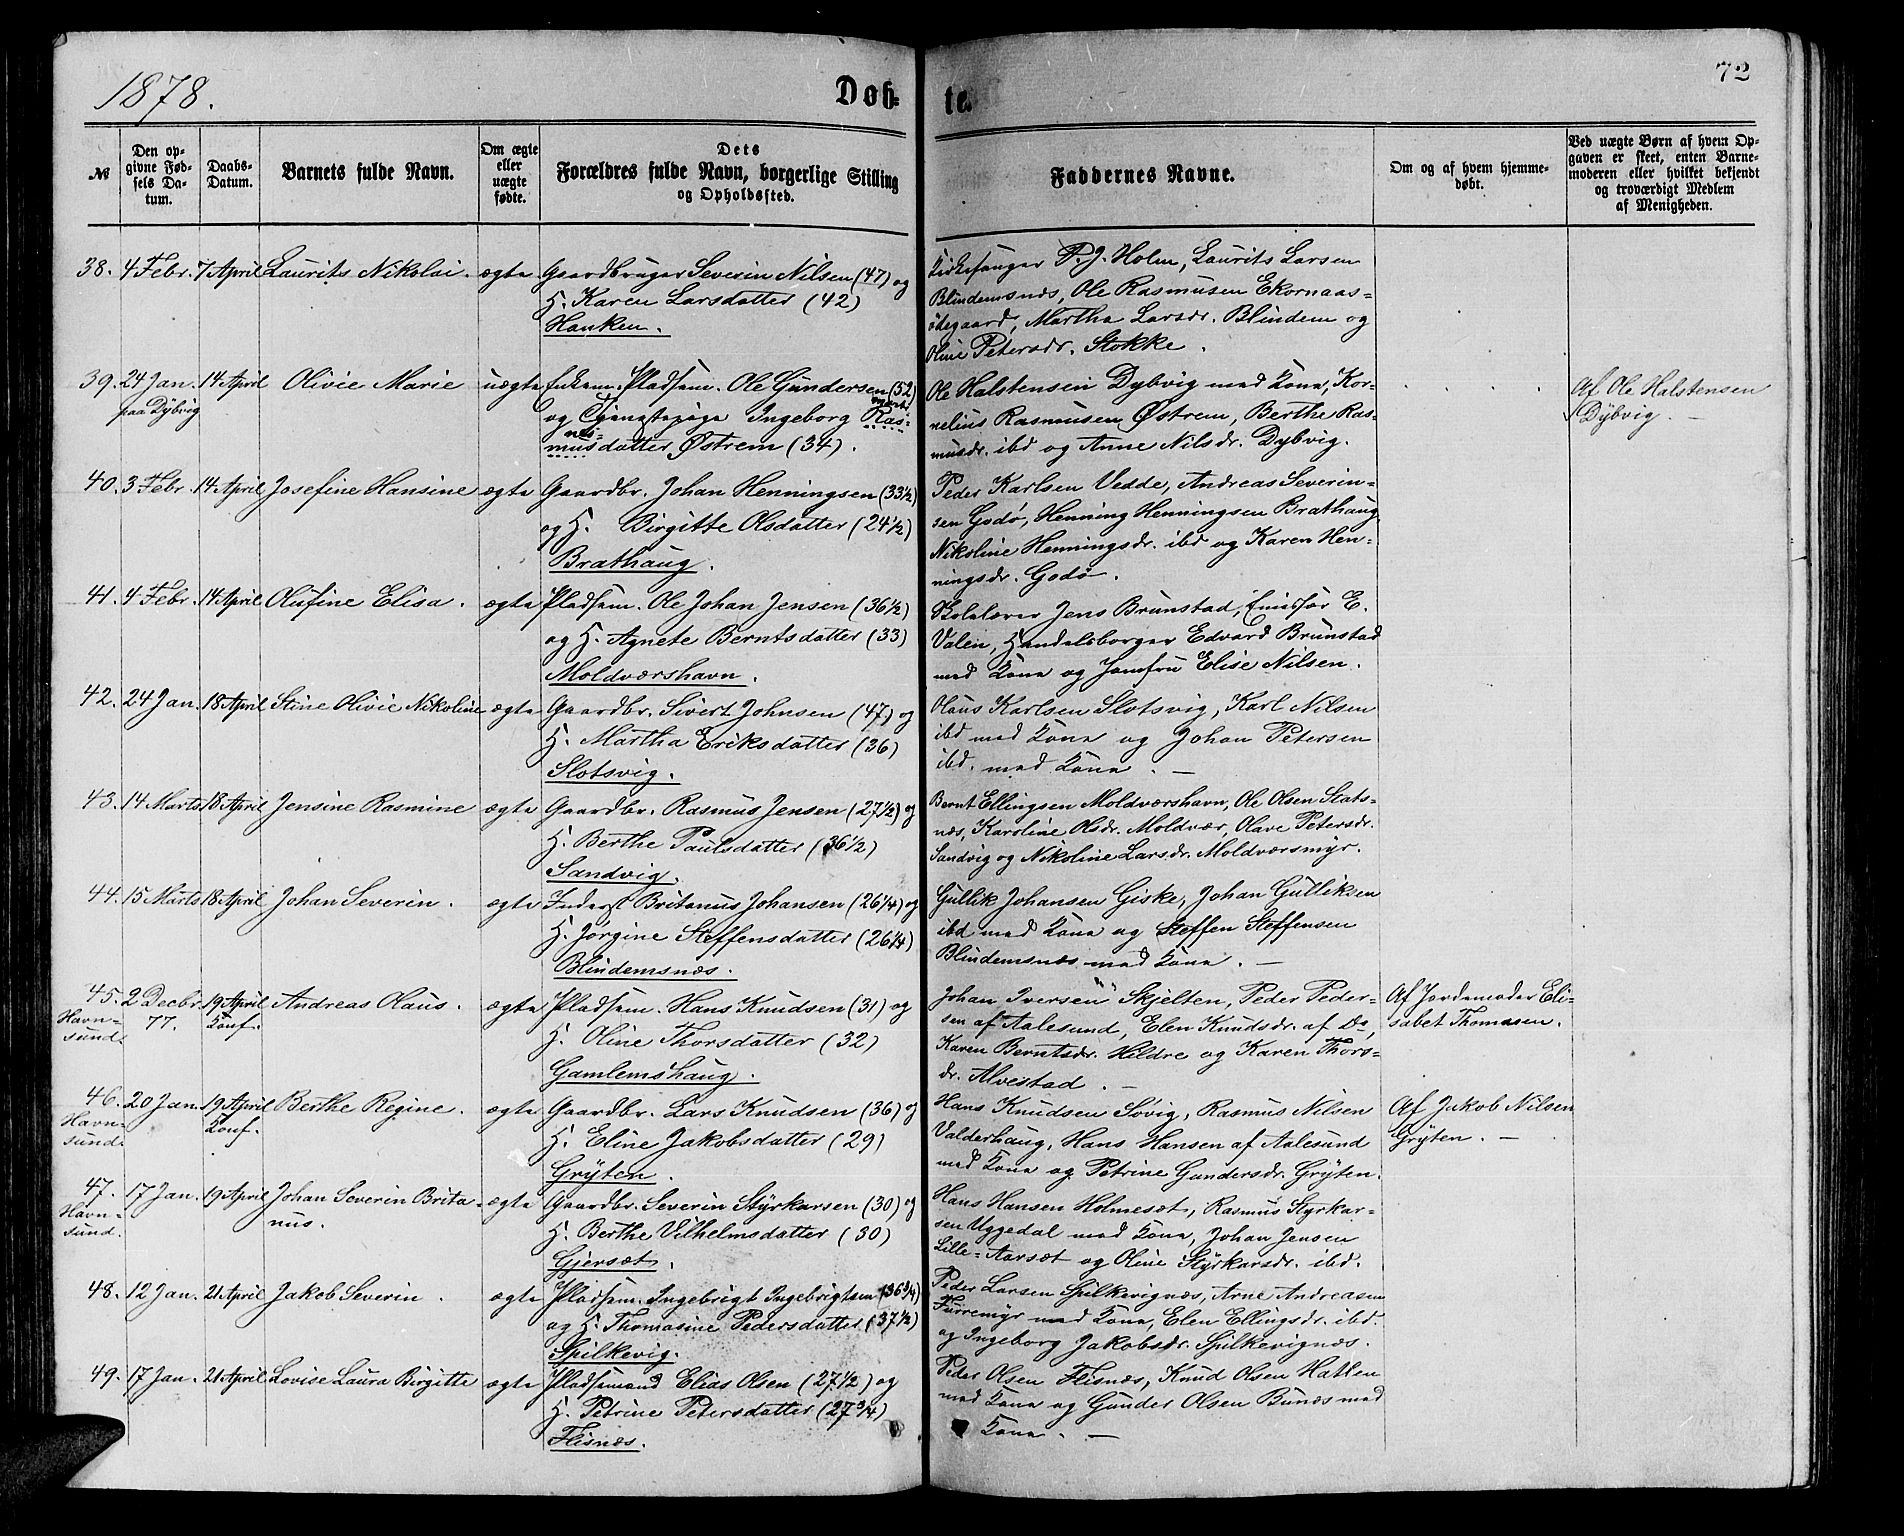 1878.
Døb=
te.
72
№
Den op-
givne Fød-
sels Da-
tum.
Daabs-
Datum.
Barnets fulde Navn.
Om ægte
eller
uægte
fødte.
Dets
Forældres fulde Navn, borgerlige Stilling
og Opholdssted.
Faddernes Navne.
Om og af hvem hjemme-
døbt.
Ved uægte Børn af hvem Op-
gaven er skeet, enten Barne-
moderen eller hvilket bekjendt
og troværdigt Medlem
af Menigheden.
38. 4 Febr. 7 April Laurits Nikolai. ægte Gaardbruger Severin Nilsen (47) og
H. Karen Larsdatter (42)
Hanken.
Kirkesanger P. J. Holm, Laurits Larsen
Blindemsnæs, Ole Rasmusen Ekornaas=
ødegaard, Martha Larsdr. Blindem og
Oline Petersdr. Stokke.
39. 24 Jan. 14 April Olivie Marie uægte Enkem. Pladsem. Ole Gundersen (52)
paa Dybvig
og Tjenestepige Ingeborg Ras=
musdatter Østrem (34).
Ole Halstensen Dybvig med Kone, Kor=
nelius Rasmusen Østrem, Berthe Ras=
musdr. ibd og Anne Nilsdr. Dybvig.
Af Ole Halstensen
Dybvig. —
40. 3 Febr. 14 April Josefine Hansine ægte Gaardbr. Johan Henningsen (33½)
og H. Birgitte Olsdatter (24½)
Brathaug.
Peder Karlsen Vedde, Andreas Severin=
sen Godø, Henning Henningsen Brathaug,
Nikoline Henningsdr. ibd og Karen Hen=
ningsdr. Godø.
41. 4 Febr. 14 April Olufine Elisa. ægte Pladsem. Ole Johan Jensen (36½)
og H. Agnete Berntsdatter (33)
Moldværshavn.
Skolelærer Jens Brunstad, Emissær E.
Valen, Handelsborger Edvard Brunstad
med Kone og Jomfru Elise Nilsen.
42. 24 Jan. 18 April Stine Olivie Nikoline ægte Gaardbr. Sivert Johnsen (47) og
H. Martha Eriksdatter (36)
Slotsvig.
Olaus Karlsen Slotsvig, Karl Nilsen
ibd med Kone og Johan Petersen
ibd. med Kone. —
43. 14 Marts 18 April Jensine Rasmine ægte Gaardbr. Rasmus Jensen (27½) og
H. Berthe Paulsdatter (36½)
Sandvig.
Bernt Ellingsen Moldværshavn, Ole Olsen Stats=
næs, Karoline Olsdr. Moldvær, Olave Petersdr.
Sandvig og Nikoline Larsdr. Moldværsmyr.
44. 15 Marts 18 April Johan Severin. ægte Inderst Britanus Johansen (26¼) og
H. Jørgine Steffensdatter (26¼)
Blindemsnæs.
Gullik Johansen Giske, Johan Gulliksen
ibd med Kone og Steffen Steffensen
Blindemsnæs med Kone. —
45. 2 Decbr. 19 April Andreas Olaus. ægte Pladsem. Hans Knudsen (31) og
Havn=
sund.
77.
Konf.
H. Oline Thorsdatter (32)
Gamlemshaug.
Johan Iversen Skjelten, Peder Peder=
sen af Aalesund, Elen Knudsdr. af Do,
Karen Berntsdr. Hildre og Karen Thors=
dr. Alvestad. —
Af Jordemoder Eli=
sabet Thomasen.
46. 20 Jan. 19 April Berthe Regine. ægte Gaardbr. Lars Knudsen (36) og
Havn=
sund.
Konf.
H. Eline Jakobsdatter (29)
Gryten.
Hans Knudsen Søvig, Rasmus Nilsen
Valderhaug, Hans Hansen af Aalesund
med Kone og Petrine Gundersdr. Gryten.
Af Jakob Nilsen
Gryten. —
47. 17 Jan. 19 April Johan Severin Brita= ægte Gaardbr. Severin Styrkarsen (30) og
Havn=
sund.
nus.
H. Berthe Vilhelmsdatter (30)
Gjersæt.
Hans Hansen Holmesæt, Rasmus Styrkar=
sen Uggedal med Kone, Johan Jensen
Lille=Aarsæt og Oline Styrkarsdr. ibd.
48. 12 Jan. 21 April Jakob Severin. ægte Pladsem. Ingebrigt Ingebrigtsen (36¾)
og H. Thomasine Pedersdatter (37½)
Spilkevig.
Peder Larsen Spilkevignæs, Arne Andreasen
Furremyr med Kone, Elen Ellingsdr. ibd.
og Ingeborg Jakobsdr. Spilkevignæs.
49. 17 Jan. 21 April Lovise Laura Birgitte ægte Pladsemand Elias Olsen (27½) og
H. Petrine Petersdatter (27¾)
Flisnæs.
Peder Olsen Flisnæs, Knud Olsen Hatlen
med Kone og Gunder Olsen Bunæs med
Kone. —